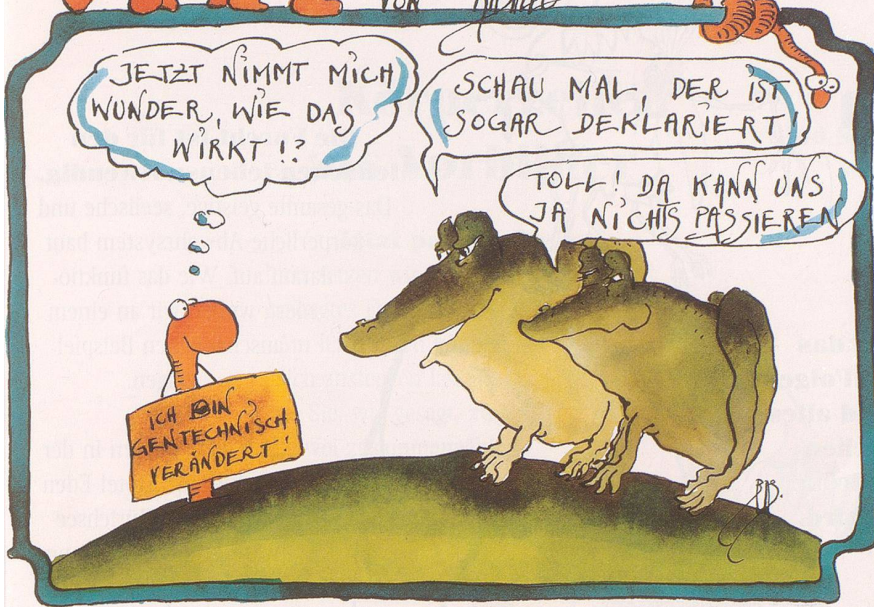 VON
JETZT NIMMT MICH
WUNDER, WIE DAS
WIRKT!?
SCHAU MAL, DER IST
SOGAR DEKLARIERT!
TOLL! DA KANN UNS
JA NICHTS PASSIEREN
ICH BIN
GENTECHNISCH
VERÄNDERT!